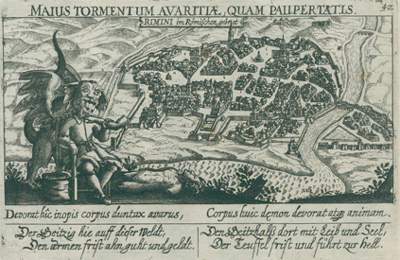 MAIUS TORMENTUM AVARITIÆ, QUAM PAUPERTATIS.
42
RIMINI im Römischen gebiet
Devorat hic inopis corpus duntax avarus,
Corpus huic demon devorat atq animam.
Der Geitzig hie auff dieser Weldt,
Den armen frist ahn guht und geldt.
Den Geitzhalß dort mit Leib und Seel,
Der Teuffel frist und führt zur hell.